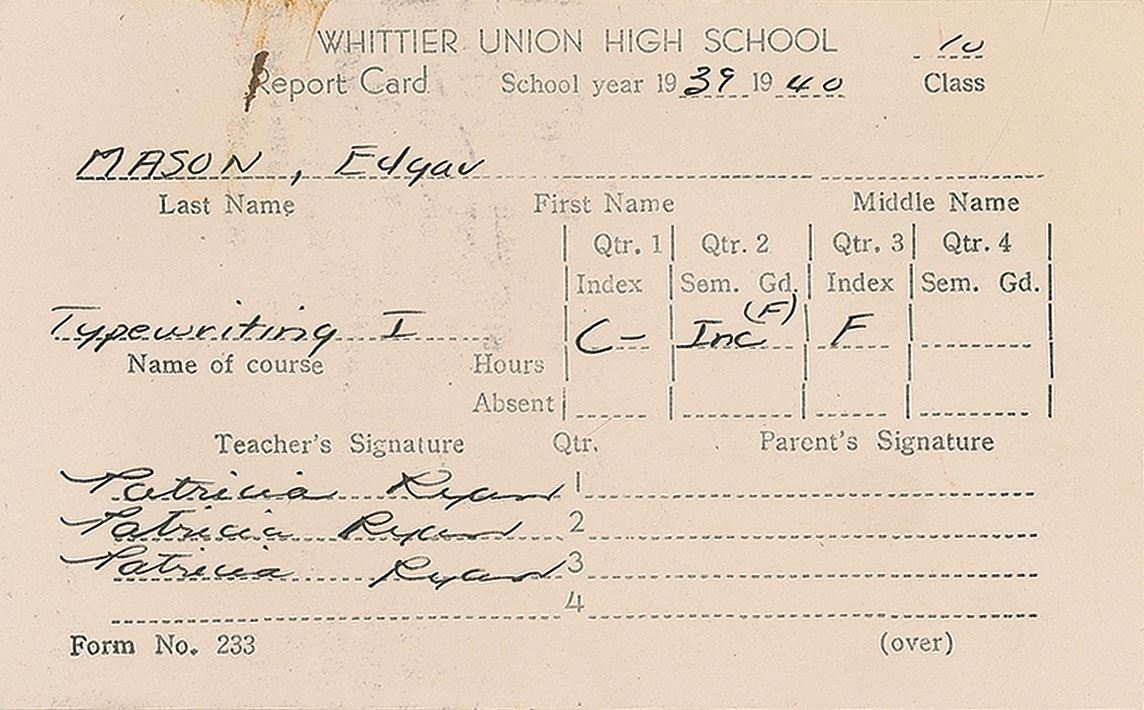 WHITTIER UNION HIGH SCHOOL 10
Report Card School year 19 39 19 40 Class
MASON, Edgar
Last Name First Name Middle Name
Qtr. 1 Qtr. 2 Qtr. 3 Qtr. 4
Index Sem. Gd. Index Sem. Gd.
Typewriting I C- Inc (F) F
Name of course Hours
Absent
Teacher's Signature Qtr. Parent's Signature
Patricia Ryan 1
Patricia Ryan 2
Patricia Ryan 3
4
Form No. 233 (over)